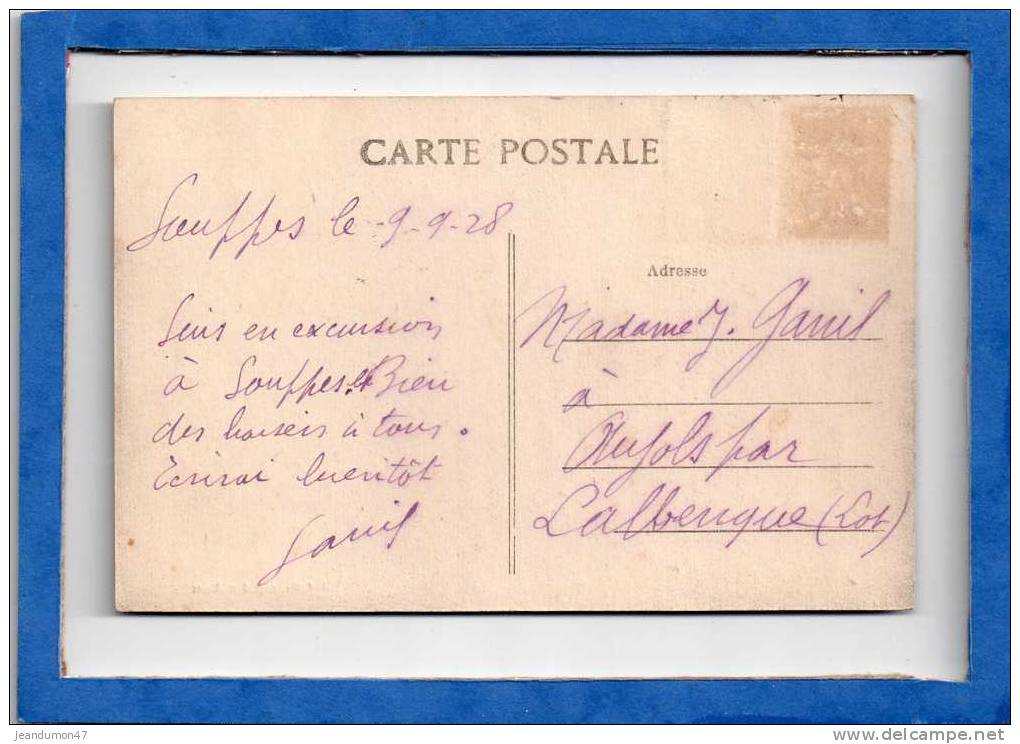 CARTE POSTALE
Souppes le 9-9-28
Suis en excursion
à Souppes. Bien
des baisers à tous.
Ecrirai bientôt
Ganil
Adresse
Madame J. Ganil
à
Aujols par
Lalbenque (Lot)
jeandumon47
www.delcampe.net